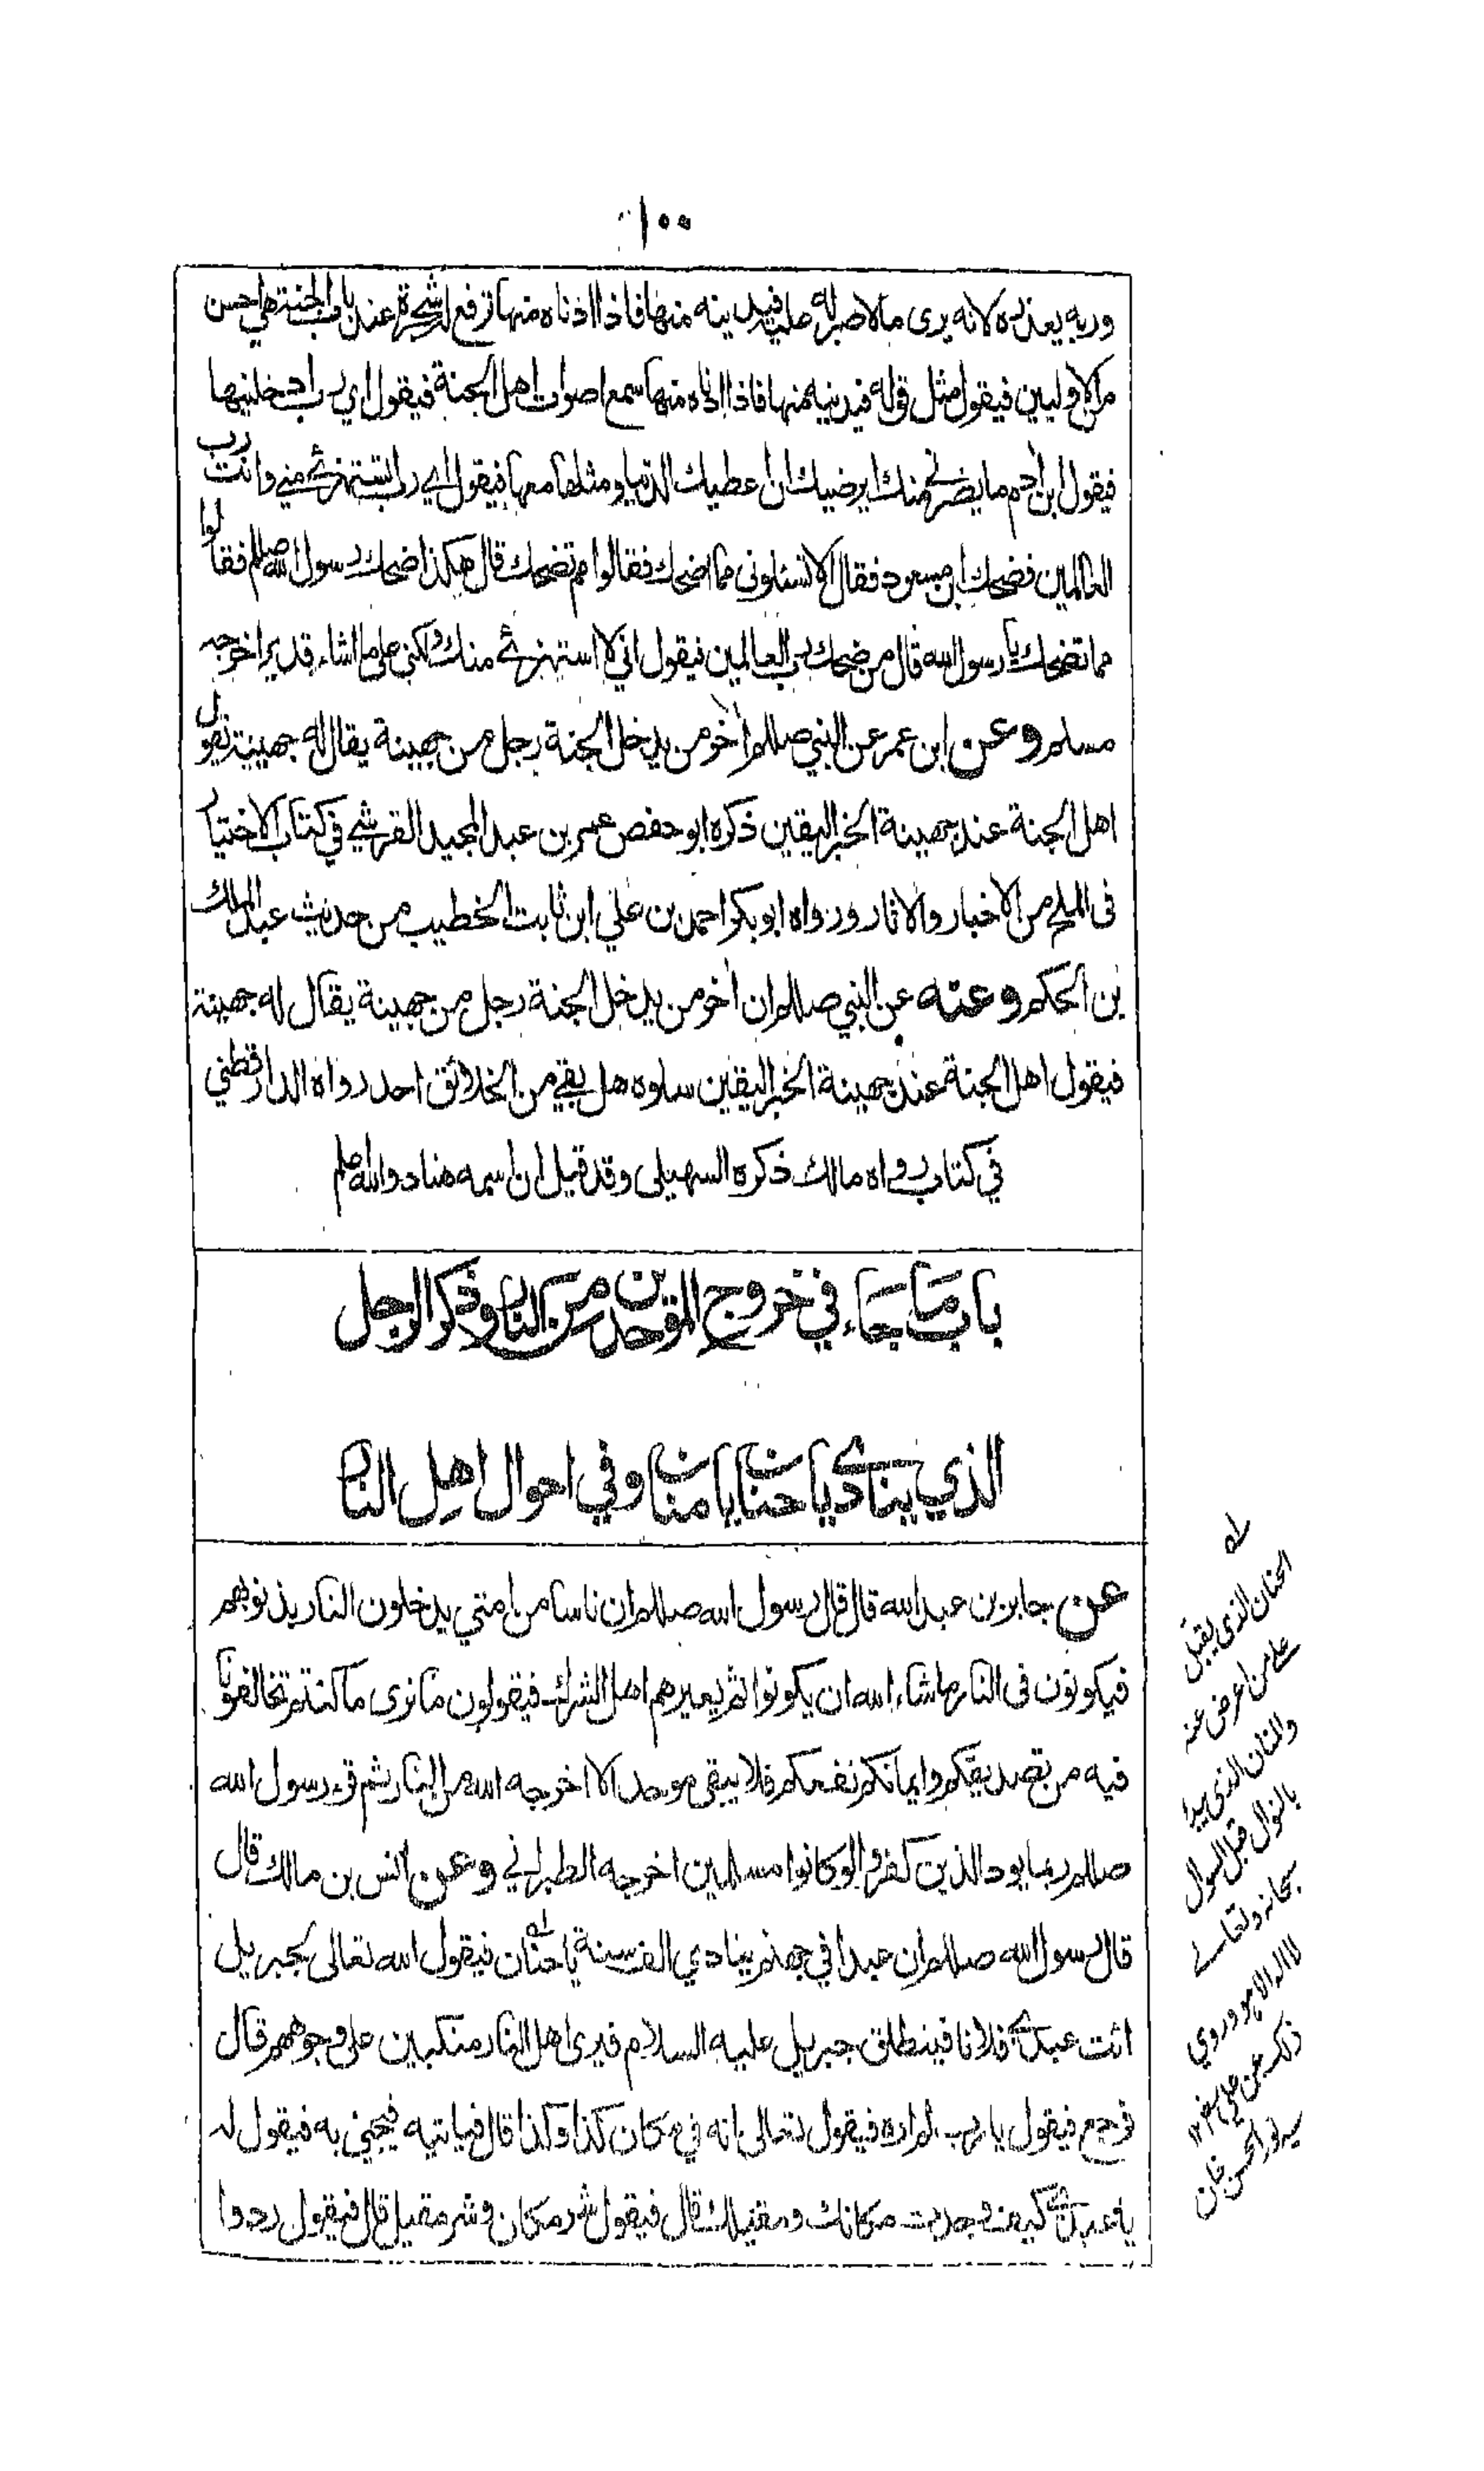 ١٠٠
وربه يعذره لانه يرى مالا صبر له عليه فيدينه منها فاذا ادناه منها ترفع له شجرة عند باب الجنة هي احسن
من الاوليين فيقول مثل قوله فيدنيه منها فاذا ادناه منها سمع اصوات اهل الجنة فيقول اي رب ادخلنيها
فيقول ابن ادم ما يضرني منك ايرضيك ان اعطيك الدنيا ومثلها معها فيقول اي رب اتستهزئ مني وانت رب
العالمين فضحك ابن مسعود فقال الا تسئلوني مما اضحك فقالوا مم تضحك قال هكذا ضحك رسول الله صللم فقالوا
مما تضحك يا رسول الله قال من ضحك رب العالمين فيقول اني لا استهزئ منك ولكني على ما اشاء قدير اخرجه
مسلم وعن ابن عمر عن النبي صللم اخر من يدخل الجنة رجل من جهينة يقال له جهينة تقول
اهل الجنة عند جهينة الخبر اليقين ذكره ابو حفص عمر بن عبد المجيد القرشي في كتاب الاختيار
فى الملح من الاخبار والاثار ورواه ابو بكر احمد بن علي ابن ثابت الخطيب من حديث عبد الملك
بن الحكم وعنه عن النبي صللم ان اخر من يدخل الجنة رجل من جهينة يقال له جهينة
فيقول اهل الجنة عند جهينة الخبر اليقين سلوه هل بقي من الخلائق احد رواه الدارقطني
في كتاب رواه مالك ذكره السهيلى وقد قيل ان اسمه هناد والله اعلم
باب ما جاء في خروج الموحدين من النار وذكر الرجل
الذي ينادي يا حنان يا منان وفي احوال اهل النار
عن جابر بن عبد الله قال قال رسول الله صللم ان ناسا من امتي يدخلون النار بذنوبهم
فيكونون فى النار ما شاء الله ان يكونوا ثم يعيرهم اهل الشرك فيقولون ما نرى ما كنتم تخالفونا
فيه من تصديقكم وايمانكم نفعكم فلا يبقى موحد الا اخرجه الله من النار ثم قرء رسول الله
صللم ربما يود الذين كفروا لو كانوا مسلمين اخرجه الطبراني وعن انس بن مالك قال
قال رسول الله صللم ان عبدا في جهنم ينادي الف سنة يا حنان فيقول الله تعالى لجبريل
ائت عبدي فلانا فينطلق جبريل عليه السلام فيرى اهل النار منكبين على وجوههم قال
فرجع فيقول يا رب لم اره فيقول تعالى انه في مكان كذا وكذا قال فياتيه فيجئ به فيقول له
يا عبدي كيف وجدت مكانك ومقيلك قال فيقول شر مكان وشر مقيل قال فيقول ردوا
له
الحنان الذى يقبل
على من اعرض عنه
والمنان الذى يبدء
بالنوال قبل السوال
سبحانه وتعالے
لا اله الا هو وروي
ذلك عن علي رض ١٢
سيد نور الحسن خان